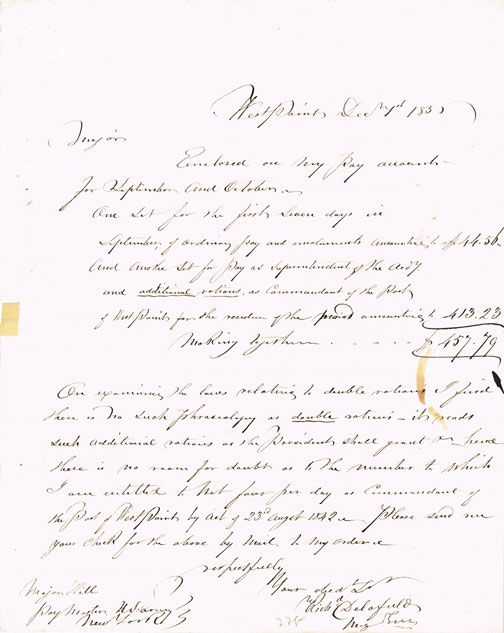 West Point Decr 1st 185
Major
Enclosed are my pay accounts
for September and October.
One set for the first seven days in
September, of ordinary pay and emoluments amounting to $44.56
And another set for pay as Superintendent of the Acdy
and additional rations, as Commandant of the Post
of West Point for the residue of the period amounting to 413.23
Making together - - - - - $457.79
On examining the laws relating to double rations I find
there is no such phraseology as double rations - its reads
such additional rations as the President shall grant &c hence
there is no room for doubt as to the number to which
I am entitled to Not four per day as Commandant of
the Post of West Point by Act of 23d augst 1842. Please send me
your check for the above by Mail to my order
respectfully
Your obedt St
Richd Delafield
Maj Engs
Major Hill
Pay Master U S army
New York